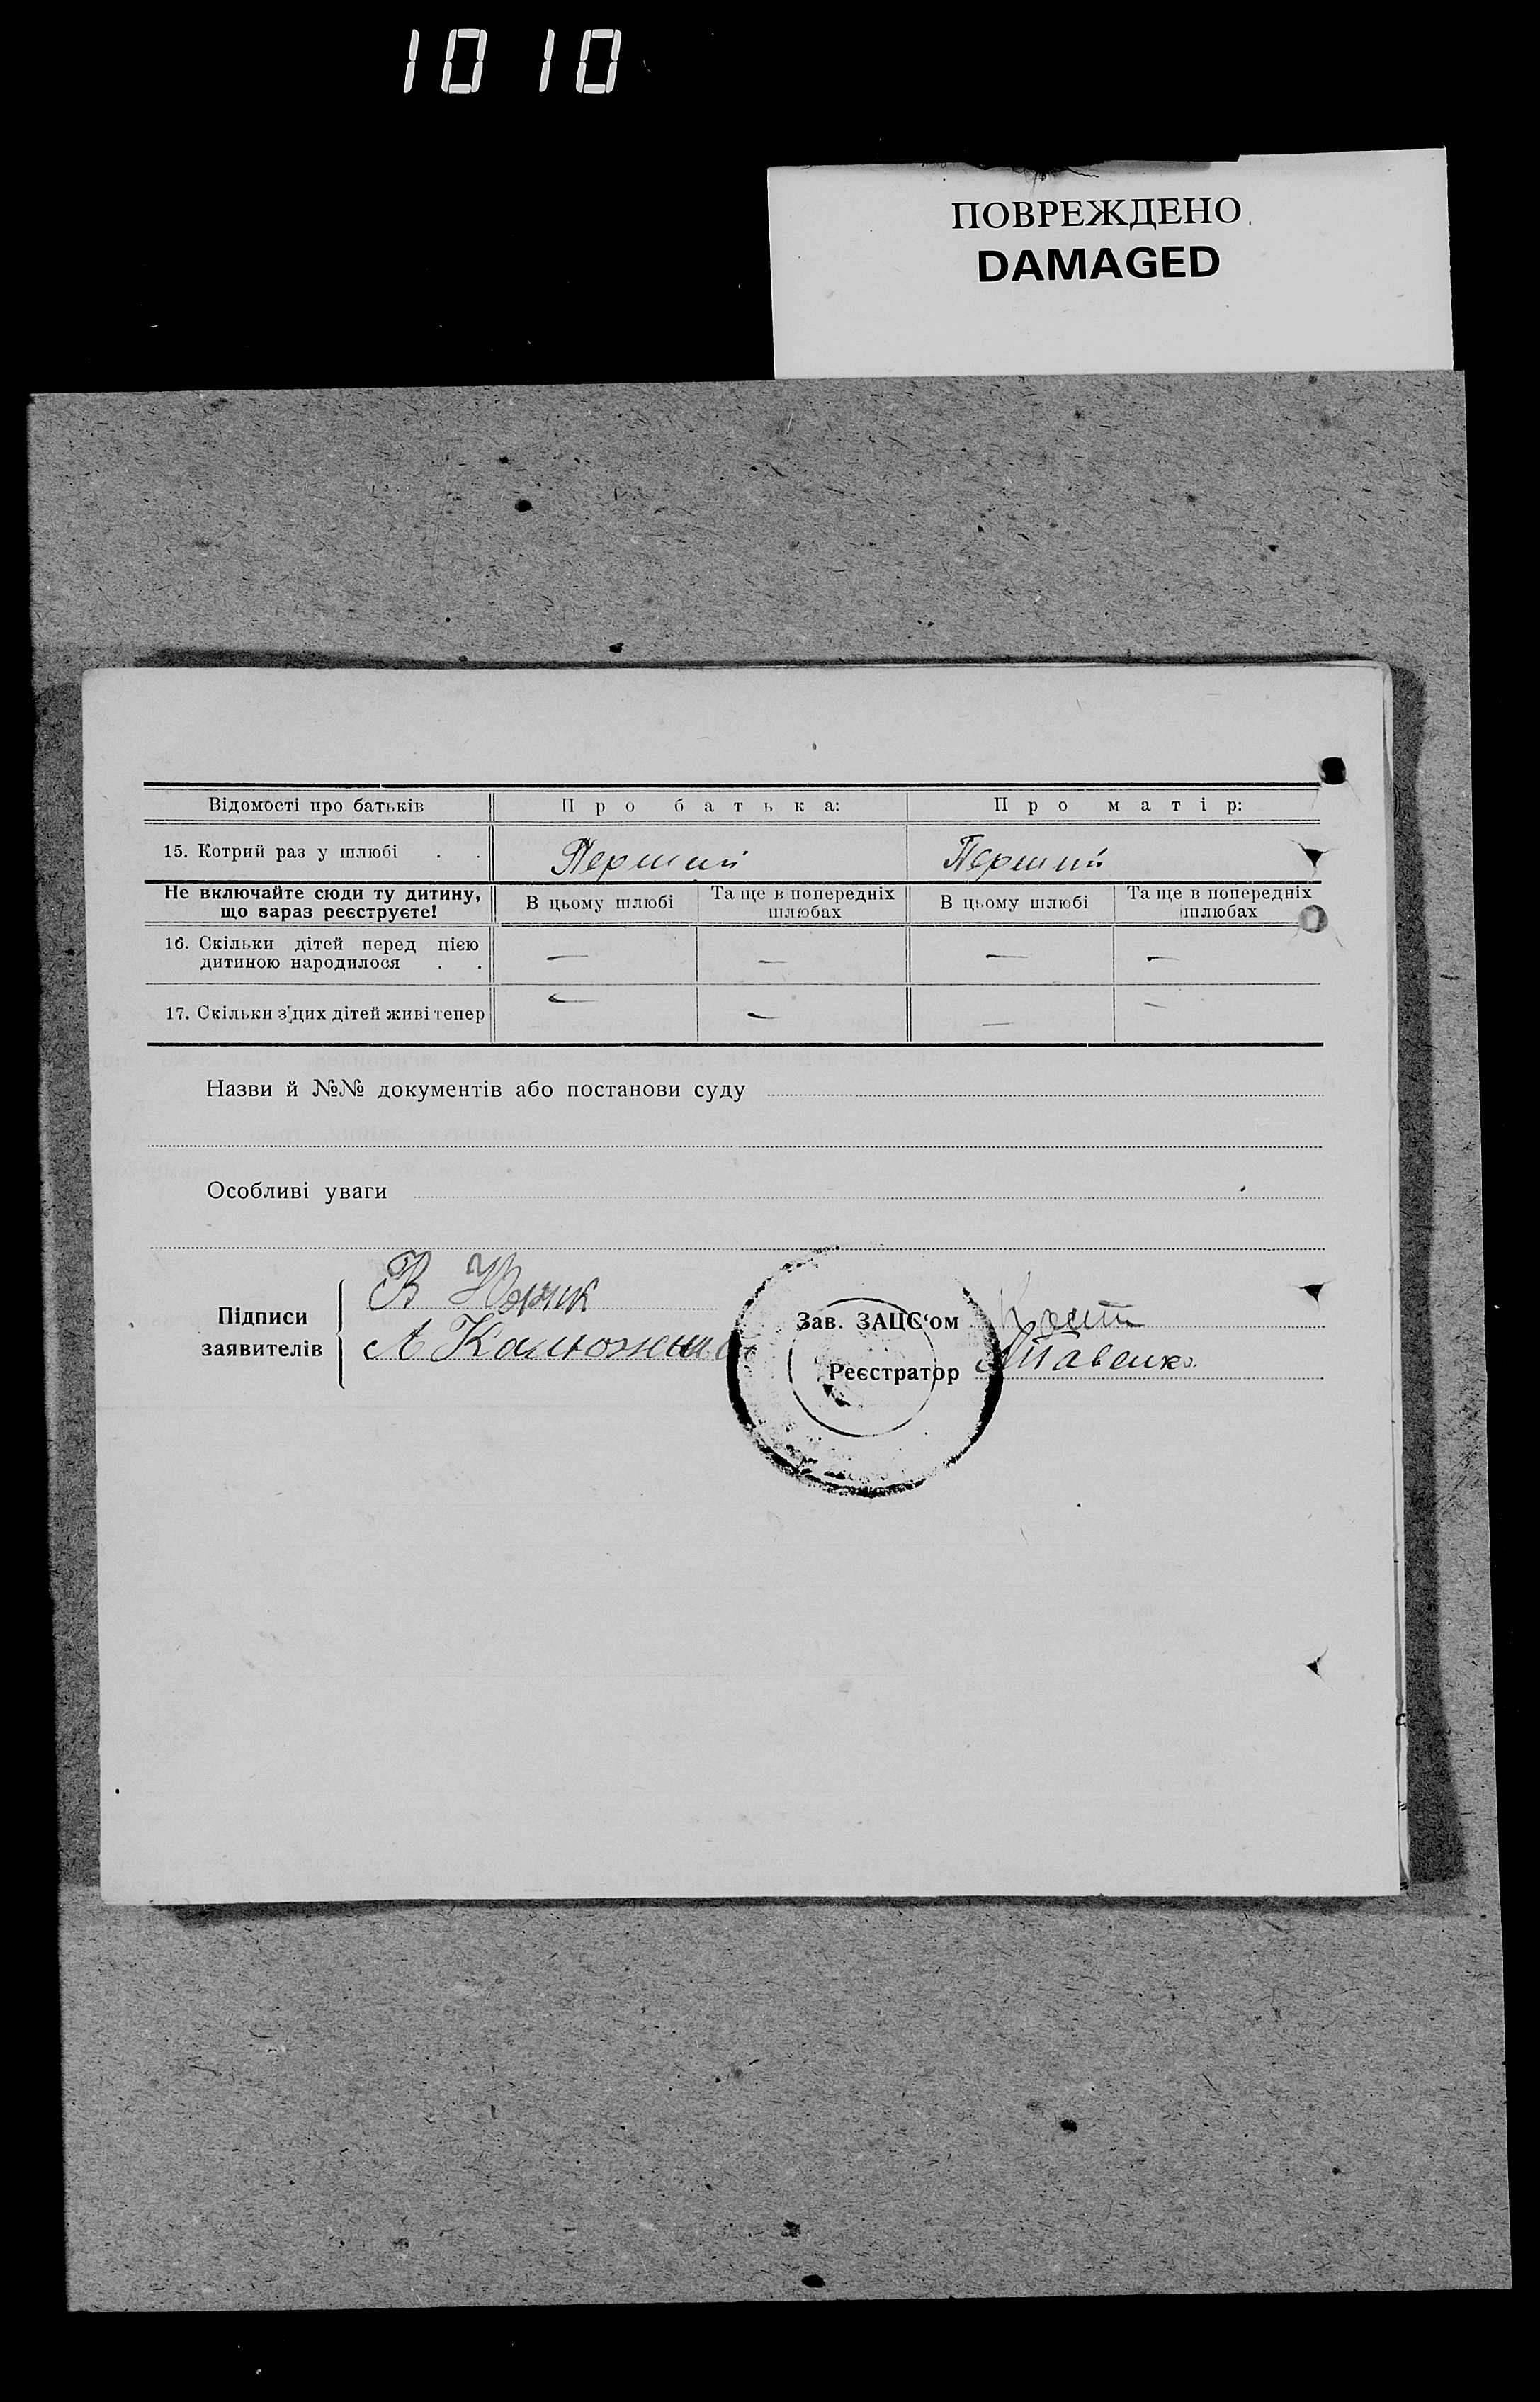 1010
ПОВРЕЖДЕНО
DAMAGED
Відомості про батьків Про батька: Про матір:
15. Котрий раз у шлюбі . . Перший Перший
Не включайте сюди ту дитину, що зараз реєструєте! В цьому шлюбі Та ще в попередніх шлюбах В цьому шлюбі Та ще в попередніх шлюбах
16. Скільки дітей перед цією
дитиною народилося . . — — — —
17. Скільки з цих дітей живі тепер — — — —
Назви й №№ документів або постанови суду
Особливі уваги
Підписи
заявителів
В
А Калюжна
Зав. ЗАЦС'ом
Реєстратор